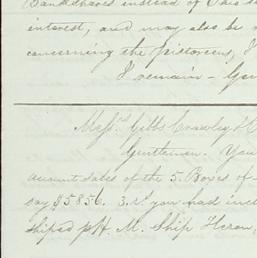 instead of
interest, and may also be
concerning the pistoreens, I
I remain - Gen
Messrs Gibbs Crawley &
Gentlemen. You
account sales of the 5 Boxes of
say $5856. 3. rs you had
shiped pr H. M. Ship Heron,